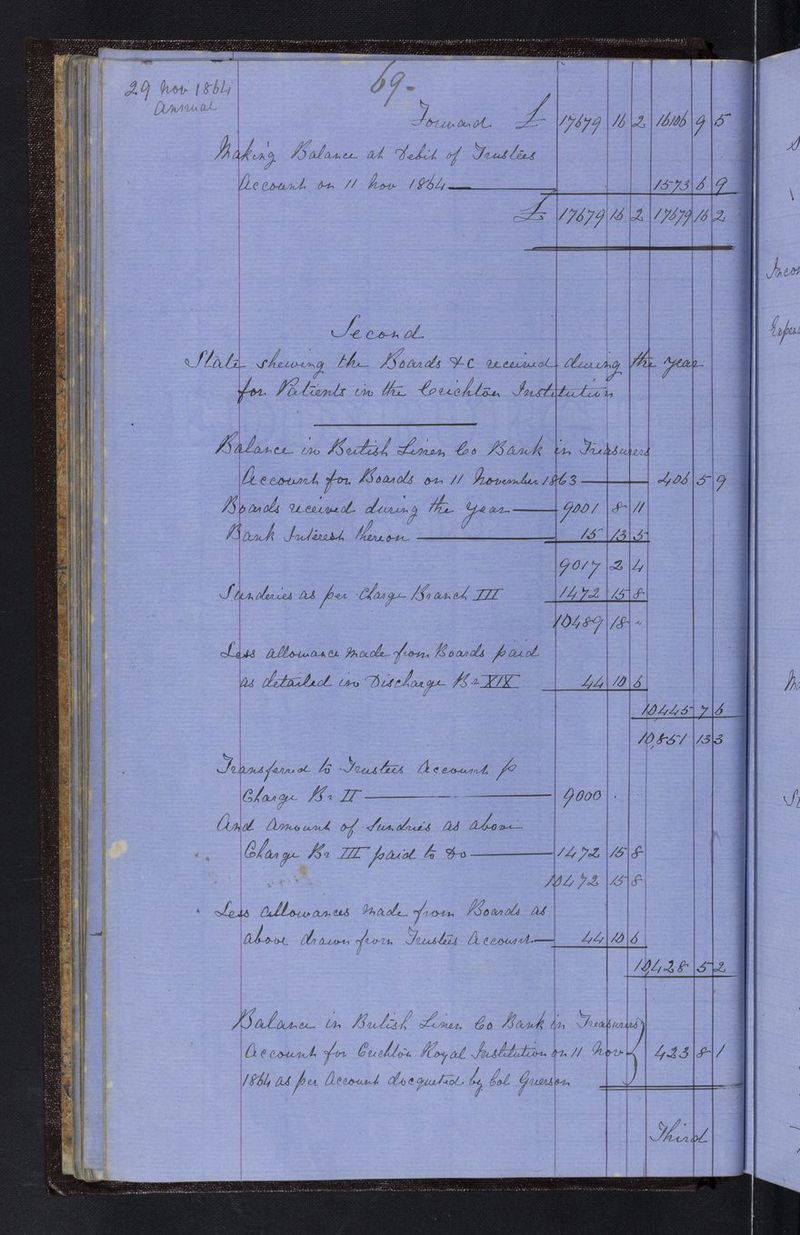 29 Nov 1864
Annual
69-
Forward £ 17679 16 2 16106 9 5
Making Balance at Debit of Trustees
Account on 11 Nov 1864 1573 6 9
£ 17679 16 2 17679 16 2
Second
State shewing the Boards &c received during the year
for Patients in the Crichton Institution
Balance in British Linen Co Bank in Treasurers
Account for Boards on 11 November 1863 406 5 9
Boards received during the year 9001 8 11
Bank Interest thereon 15 13 5
9017 2 4
Sunderies as per Charge Branch III 1472 15 8
10489 18 "
Less allowance made from Boards paid
as detailed in Discharge Br XIX 44 10 6
10,445 7 6
10,851 13 3
Transferred to Trustees Account p
Charge Br II 9000 .
And Amount of Sundries as above
Charge Br III paid to Do 1472 15 8
10472 15 8
Less Allowances made from Boards as
above drawn from Trustees Account 44 10 6
10,428 5 2
Balance in British Linen Co Bank in Treasurers
Account for Crichton Royal Institution on 11 Nov 423 8 1
1864 as per Account docqueted by Col Grierson
Third